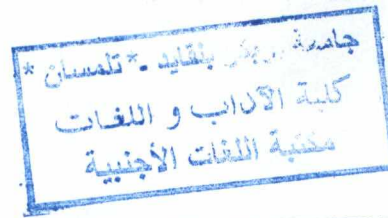 جامعة بلقايد * تلمسان *
كلية الآداب و اللغات
مكتبة اللغات الأجنبية